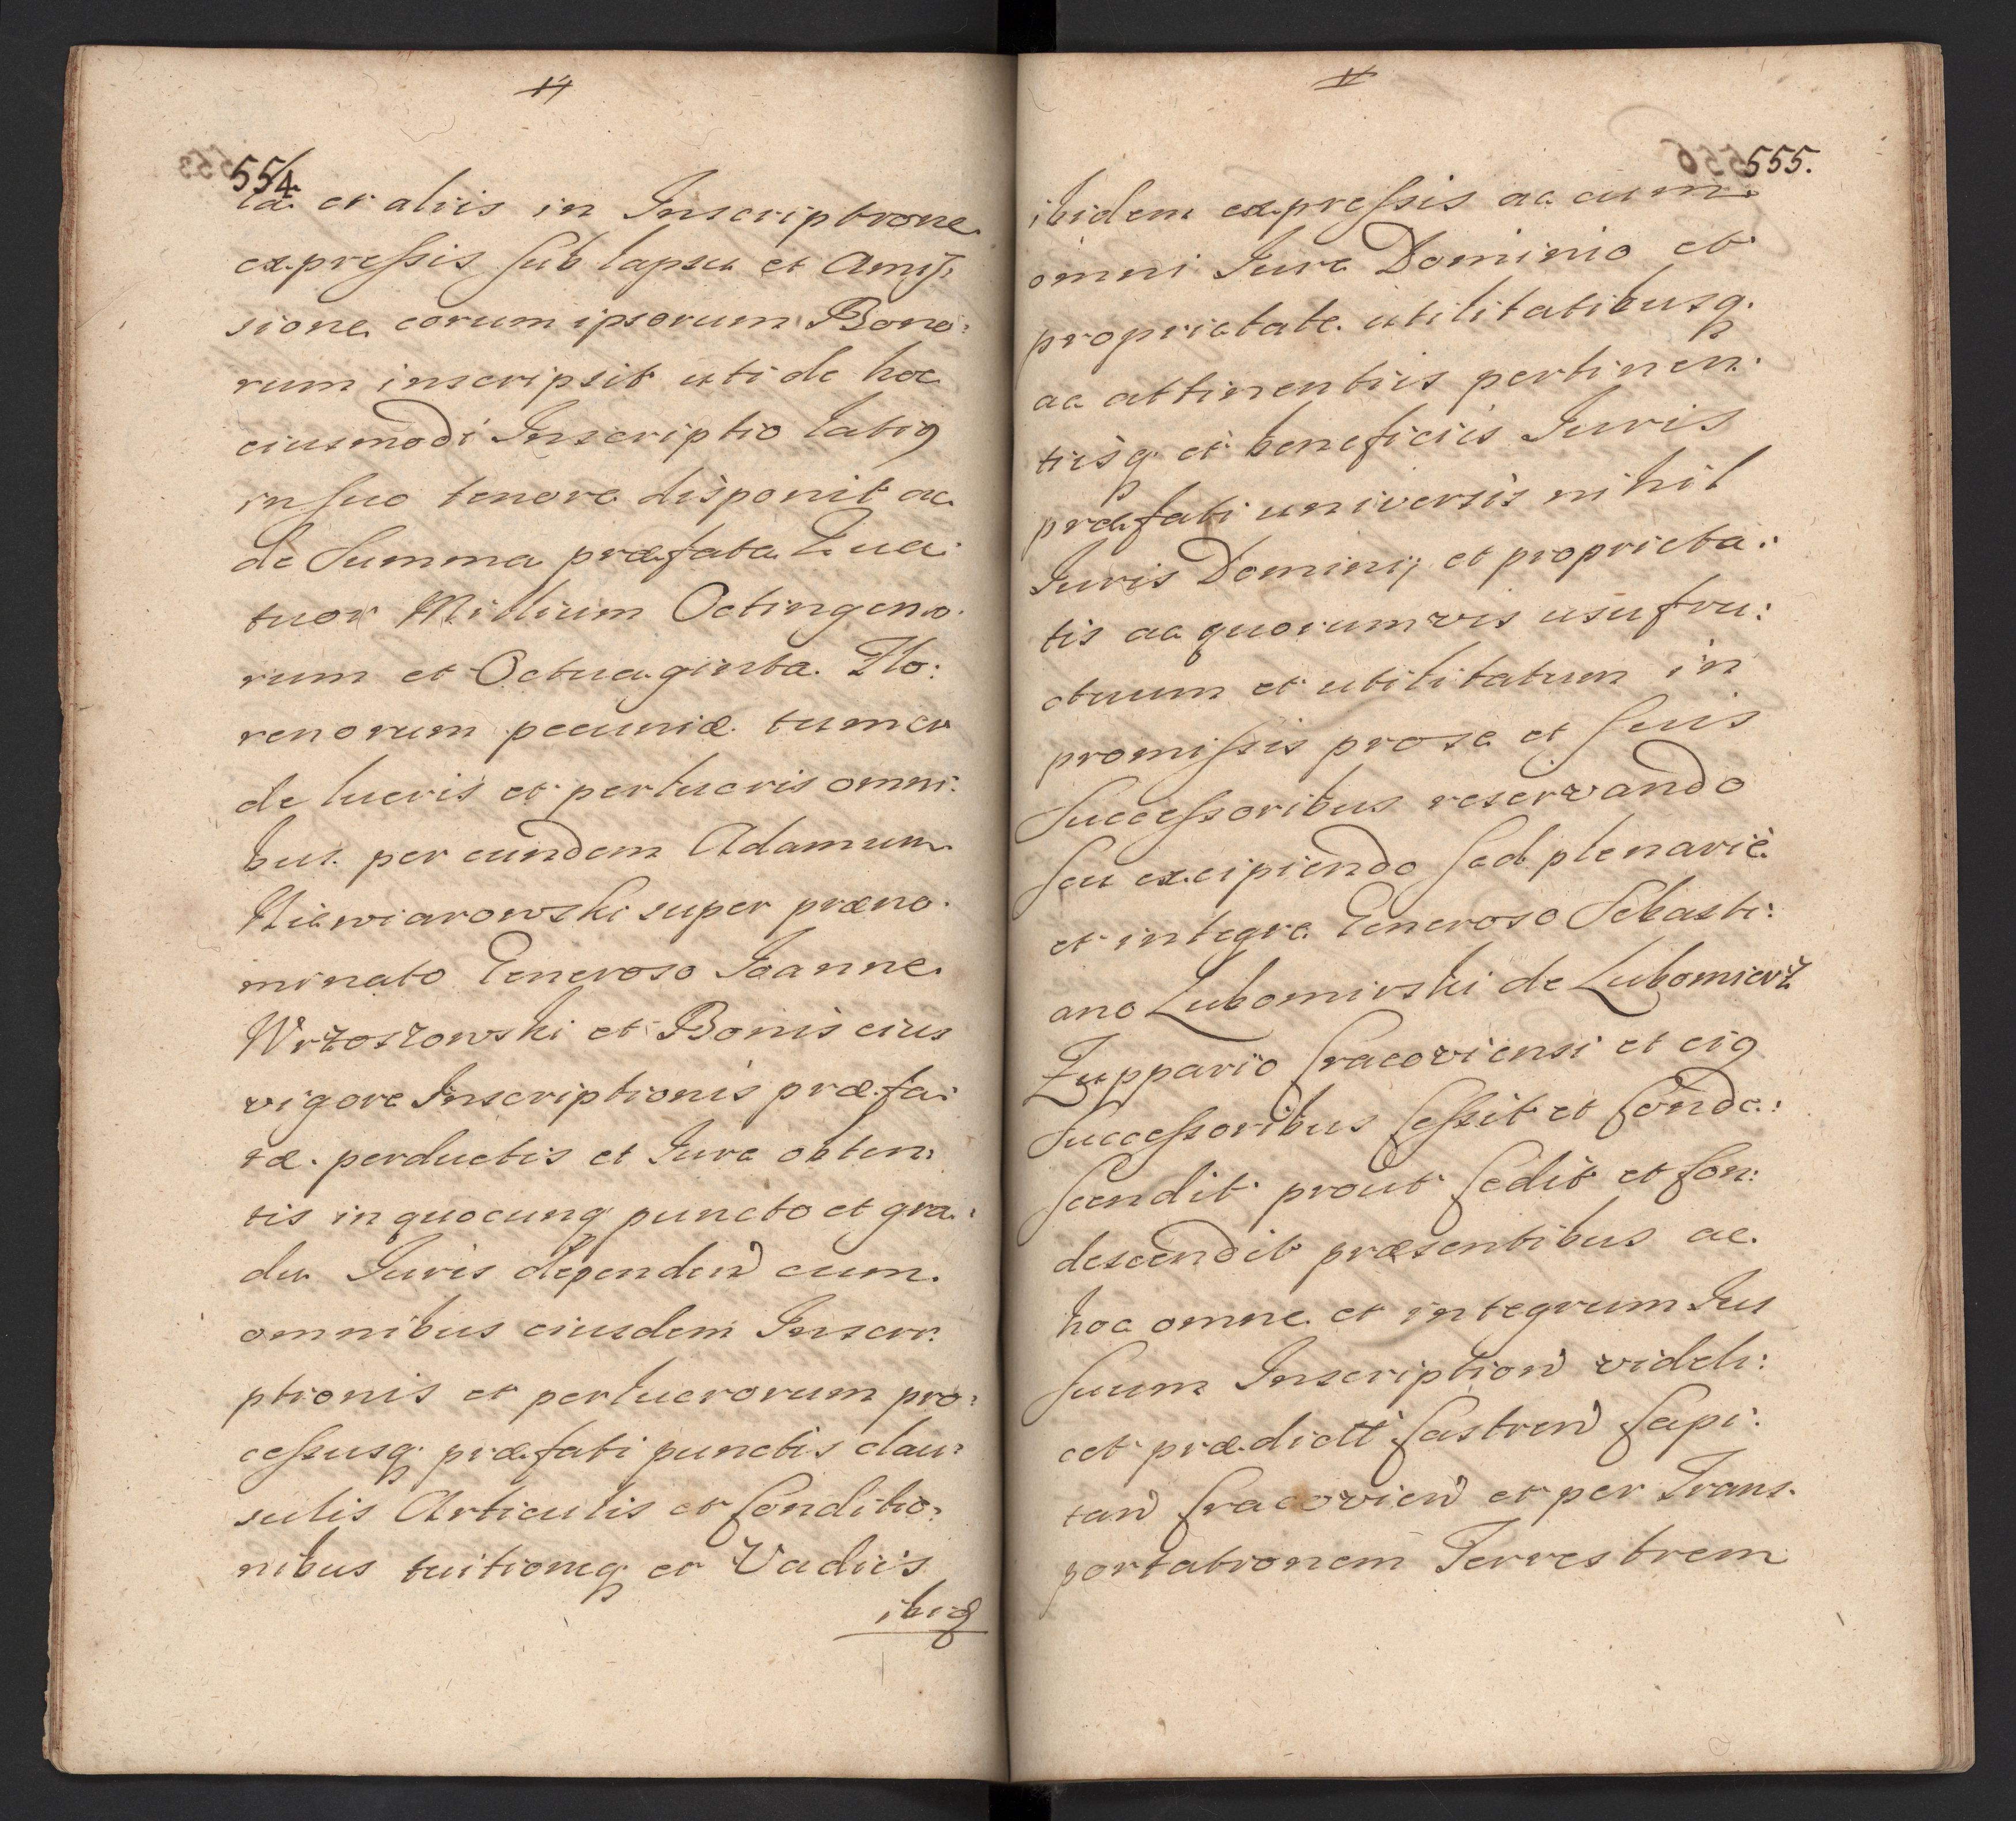 14
554
ta et aliis in Inscriptione
expressis sub lapsu et Amis:
sione eorum ipsorum Bono:
rum inscripsit uti de hoc
eiusmodi Inscriptio latiq
in suo tenore disponit ac
de Summa præfata Qua:
tuor Millium Octingento:
rum et Octuaginta Flo:
renorum pecuniæ tum et
de lucris et perlucris omni:
bus per eundem Adamum
Niewiarowski super præno:
minato Generoso Joanne
Wrzoszowski et Bonis eius
vigore Inscriptionis præfa:
tæ perductis et Jure obten:
tis in quocunq puncto et gra:
du Juris dependen cum
omnibus eiusdem Inscri:
ptionis et perlucrorum pro:
cessusq præfati punctis clau:
sulis Articulis et Conditio:
nibus tuitioneq et Vadiis
ibid
11
555.
ibidem expressis ac cum
omni Jure Dominio et
proprietate utilitatibusq
ac attinentiis pertinen:
tiisq et beneficiis Juris
præfati universis nihil
Juris Dominij et proprieta:
tis ac quorumvis usufru:
ctuum et utilitatum in
promissis pro se et suis
Successoribus reservando
seu excipiendo sed plenarie
et integre Generoso Sebasti:
ano Lubomirski de Lubomierz
Zuppario Cracoviensi et eiq
Successoribus Cessit et Conde:
scendit prout Cedit et Con:
descendit præsentibus ac
hoc omne et integrum Jus
suum Inscription videli:
cet prædictt Castren Capi:
tan Cracovien et per Trans:
portationem Terrestrem